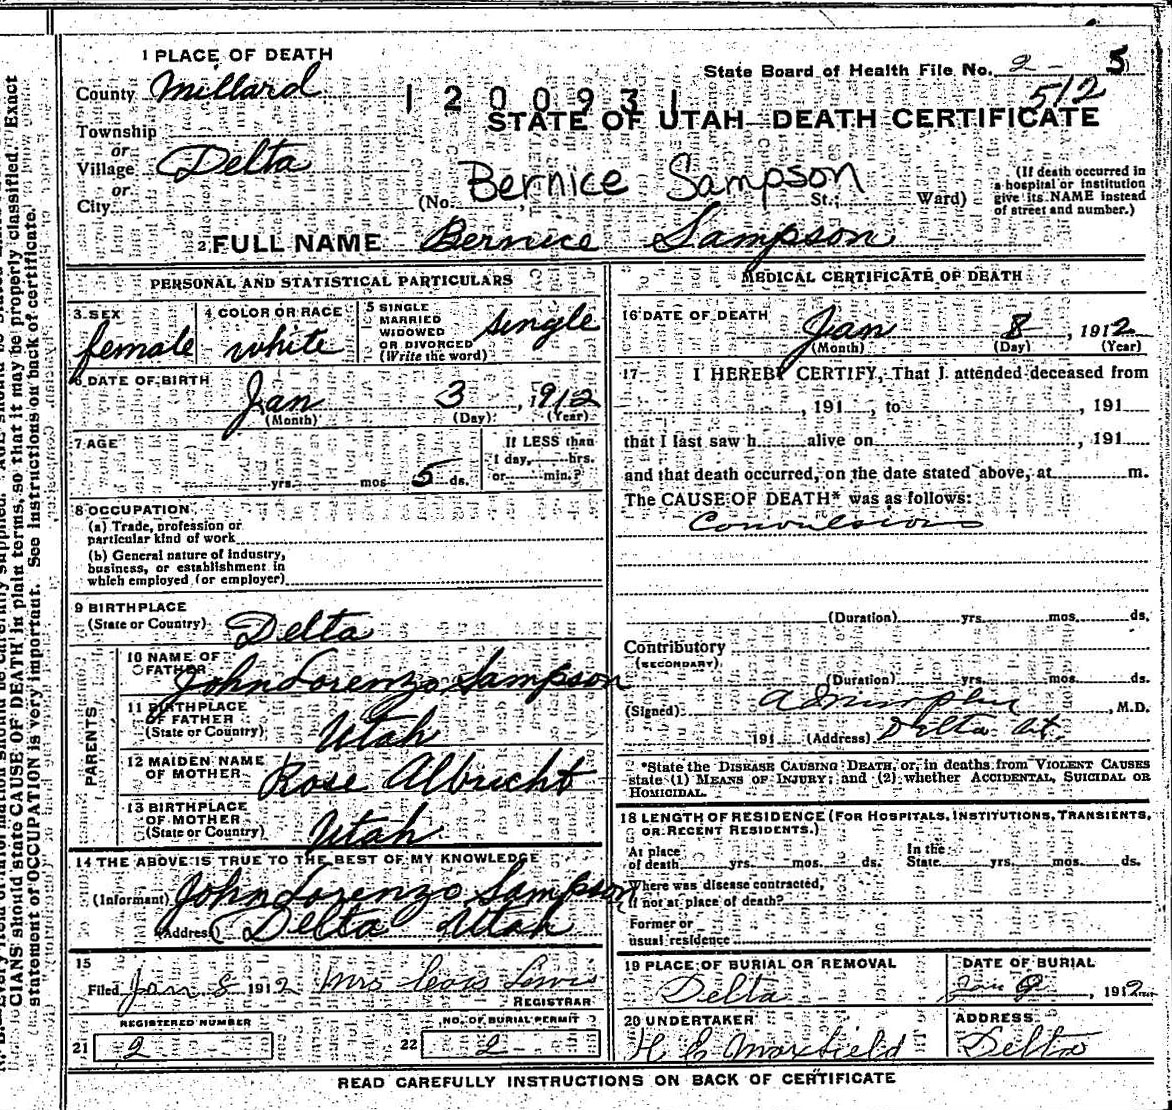 1 PLACE OF DEATH
County Millard
1 2 0 0 9 3 1
State Board of Health File No. 2 - 5
512
STATE OF UTAH—DEATH CERTIFICATE
Township
or
Village Delta
or
City
(No. Bernice Sampson St.; Ward)
(If death occurred in
a hospital or institution
give its NAME instead
of street and number.)
2 FULL NAME Bernice Sampson
PERSONAL AND STATISTICAL PARTICULARS
3 SEX
female
4 COLOR OR RACE
white
5 SINGLE
MARRIED
WIDOWED
OR DIVORCED
(Write the word)
single
6 DATE OF BIRTH
Jan 3, 1912
(Month) (Day) (Year)
7 AGE
yrs. mos. 5 ds.
If LESS than
1 day, hrs.
or min.?
8 OCCUPATION
(a) Trade, profession or
particular kind of work
(b) General nature of industry,
business, or establishment in
which employed (or employer)
9 BIRTHPLACE
(State or Country) Delta
PARENTS
10 NAME OF
FATHER John Lorenzo Sampson
11 BIRTHPLACE
OF FATHER
(State or Country) Utah
12 MAIDEN NAME
OF MOTHER Rose Albrecht
13 BIRTHPLACE
OF MOTHER
(State or Country) Utah
14 THE ABOVE IS TRUE TO THE BEST OF MY KNOWLEDGE
(Informant) John Lorenzo Sampson
(Address) Delta Utah
15
Filed Jan 8 1912 Mrs Lewis
REGISTRAR
REGISTERED NUMBER
21 2
NO. OF BURIAL PERMIT
22 2
MEDICAL CERTIFICATE OF DEATH
16 DATE OF DEATH
Jan 8, 1912
(Month) (Day) (Year)
17 I HEREBY CERTIFY, That I attended deceased from
, 191 , to , 191
that I last saw h alive on , 191
and that death occurred, on the date stated above, at m.
The CAUSE OF DEATH* was as follows:
Convulsions
(Duration) yrs. mos. ds.
Contributory
(SECONDARY)
(Duration) yrs. mos. ds.
(Signed) , M.D.
191 (Address) Delta Ut.
*State the DISEASE CAUSING DEATH, or, in deaths from VIOLENT CAUSES
state (1) MEANS OF INJURY; and (2) whether ACCIDENTAL, SUICIDAL OR
HOMICIDAL.
18 LENGTH OF RESIDENCE (FOR HOSPITALS, INSTITUTIONS, TRANSIENTS,
OR RECENT RESIDENTS.)
At place
of death yrs. mos. ds.
In the
State yrs. mos. ds.
Where was disease contracted,
if not at place of death?
Former or
usual residence
19 PLACE OF BURIAL OR REMOVAL
Delta
DATE OF BURIAL
Jan 9, 1912
20 UNDERTAKER
H E Maxfield
ADDRESS
Delta
READ CAREFULLY INSTRUCTIONS ON BACK OF CERTIFICATE
CIANS should state CAUSE OF DEATH in plain terms, so that it may be properly classified. Exact
statement of OCCUPATION is very important. See instructions on back of certificate.